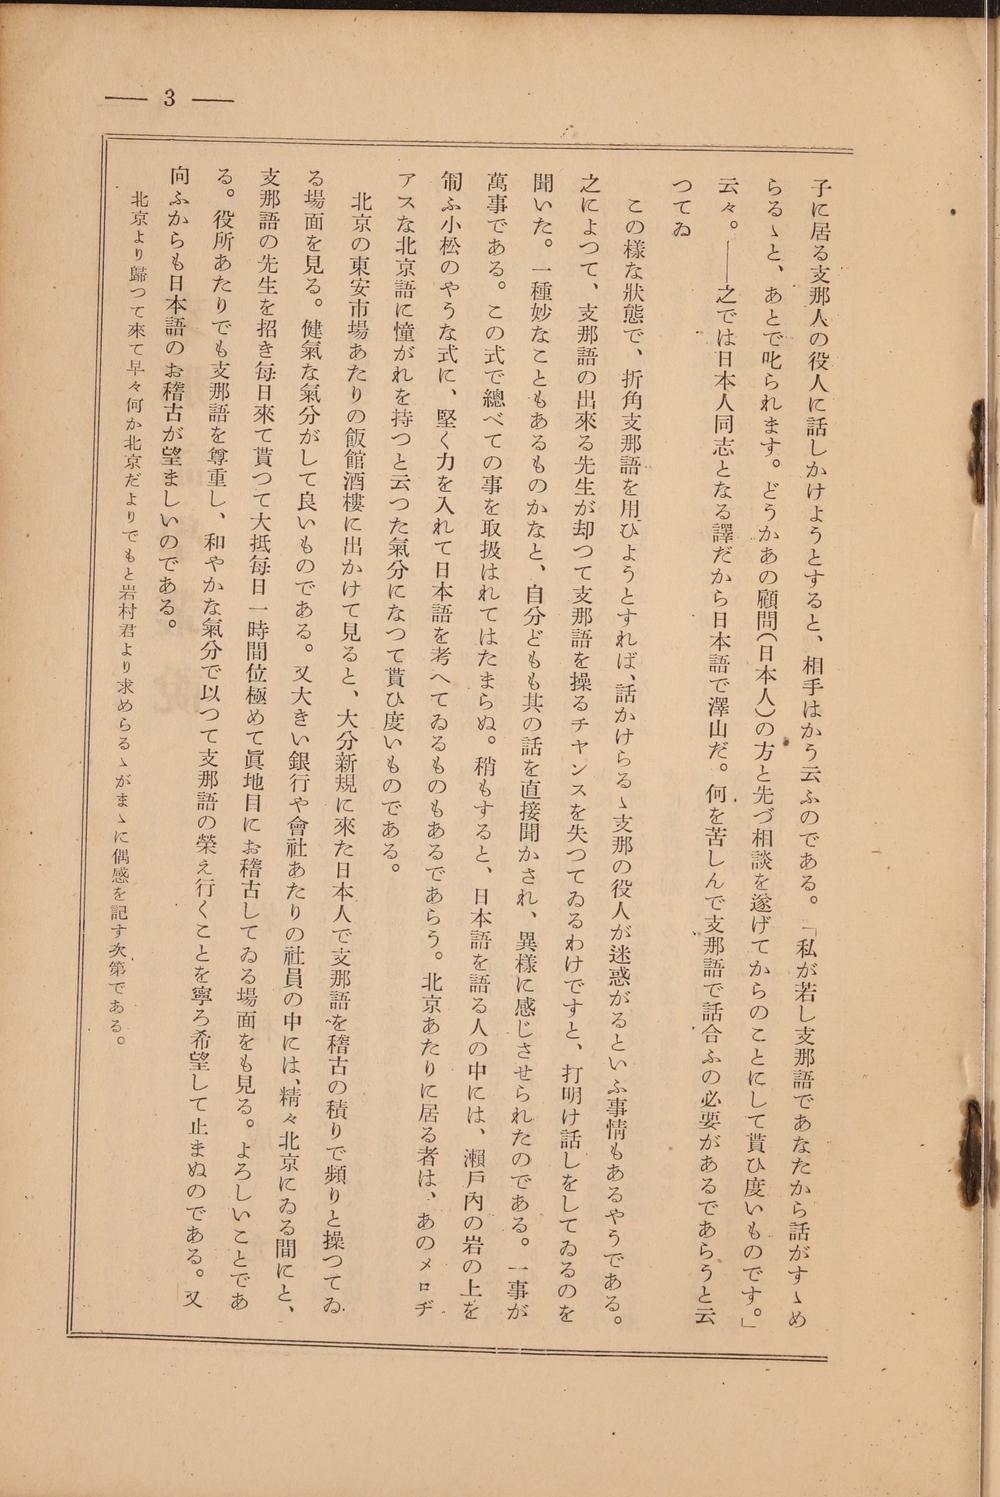 — 3 —
子に居る支那人の役人に話しかけようとすると、相手はかう云ふのである。「私が若し支那語であなたから話がすゝめ
らるゝと、あとで叱られます。どうかあの顧問(日本人)の方と先づ相談を遂げてからのことにして貰ひ度いものです。」
云々。――之では日本人同志となる譯だから日本語で澤山だ。何を苦しんで支那語で話合ふの必要があるであらうと云
つてゐ
この様な狀態で、折角支那語を用ひようとすれば、話かけらるゝ支那の役人が迷惑がるといふ事情もあるやうである。
之によつて、支那語の出來る先生が却つて支那語を操るチヤンスを失つてゐるわけですと、打明け話しをしてゐるのを
聞いた。一種妙なこともあるものかなと、自分どもも其の話を直接聞かされ、異樣に感じさせられたのである。一事が
萬事である。この式で總べての事を取扱はれてはたまらぬ。稍もすると、日本語を語る人の中には、瀨戸内の岩の上を
匍ふ小松のやうな式に、堅く力を入れて日本語を考へてゐるものもあるであらう。北京あたりに居る者は、あのメロヂ
アスな北京語に憧がれを持つと云つた氣分になつて貰ひ度いものである。
北京の東安市場あたりの飯館酒樓に出かけて見ると、大分新規に來た日本人で支那語を稽古の積りで頻りと操つてゐ
る場面を見る。健氣な氣分がして良いものである。又大きい銀行や會社あたりの社員の中には、精々北京にゐる間にと、
支那語の先生を招き每日來て貰つて大抵每日一時間位極めて眞地目にお稽古してゐる場面をも見る。よろしいことであ
る。役所あたりでも支那語を尊重し、和やかな氣分で以つて支那語の榮え行くことを寧ろ希望して止まぬのである。又
向ふからも日本語のお稽古が望ましいのである。
北京より歸つて來て早々何か北京だよりでもと岩村君より求めらるゝがまゝに偶感を記す次第である。